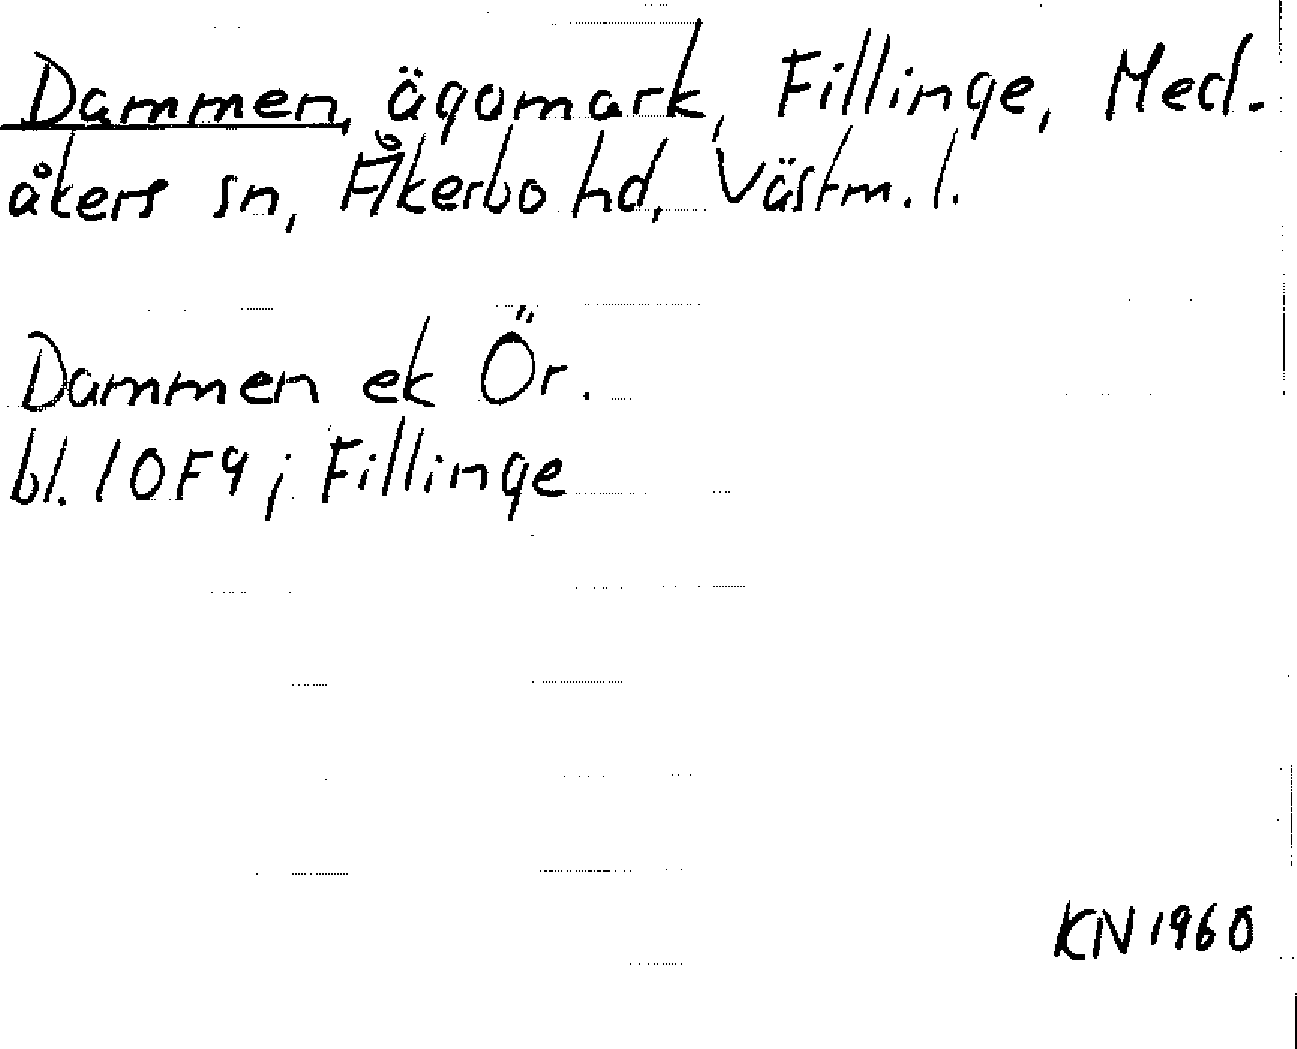 Dammen, ägomark, Fillinge, Med-
åkers sn, Åkerbo hd, Västm. l.
Dammen ek Ör.
bl. 10F9; Fillinge
KN 1960